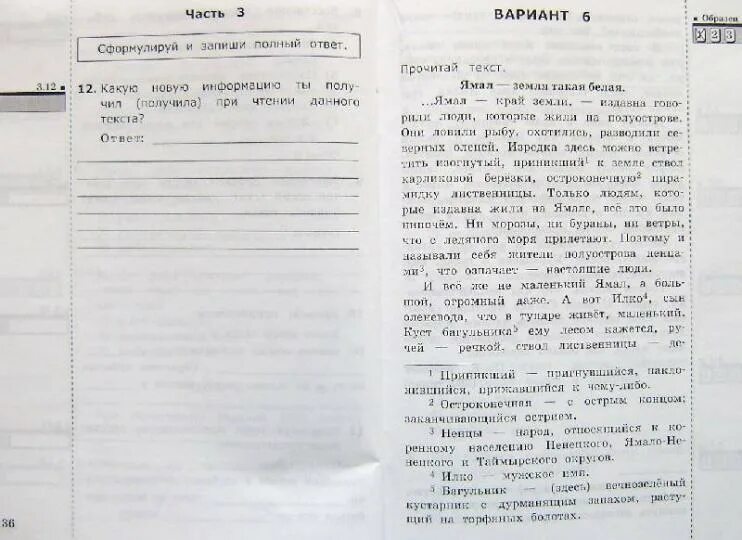 Часть 3
Сформулируй и запиши полный ответ.
3.12
12. Какую новую информацию ты полу-
чил (получила) при чтении данного
текста?
Ответ:
36
ВАРИАНТ 6
Образец
X 2 3
Прочитай текст.
Ямал — земля такая белая.
...Ямал — край земли, — издавна гово-
рили люди, которые жили на полуострове.
Они ловили рыбу, охотились, разводили се-
верных оленей. Изредка здесь можно встре-
тить изогнутый, приникший¹ к земле ствол
карликовой берёзки, остроконечную² пира-
мидку лиственницы. Только людям, кото-
рые издавна жили на Ямале, всё это было
нипочём. Ни морозы, ни бураны, ни ветры,
что с ледяного моря прилетают. Поэтому и
называли себя жители полуострова ненца-
ми³, что означает — настоящие люди.
И всё же не маленький Ямал, а боль-
шой, огромный даже. А вот Илко⁴, сын
оленевода, что в тундре живёт, маленький.
Куст багульника⁵ ему лесом кажется, ру-
чей — речкой, ствол лиственницы — де-
¹ Приникший — пригнувшийся, накло-
нившийся, прижавшийся к чему-либо.
² Остроконечная — с острым концом;
заканчивающийся острием.
³ Ненцы — народ, относящийся к ко-
ренному населению Ненецкого, Ямало-Не-
нецкого и Таймырского округов.
⁴ Илко — мужское имя.
⁵ Багульник — (здесь) вечнозелёный
кустарник с дурманящим запахом, расту-
щий на торфяных болотах.